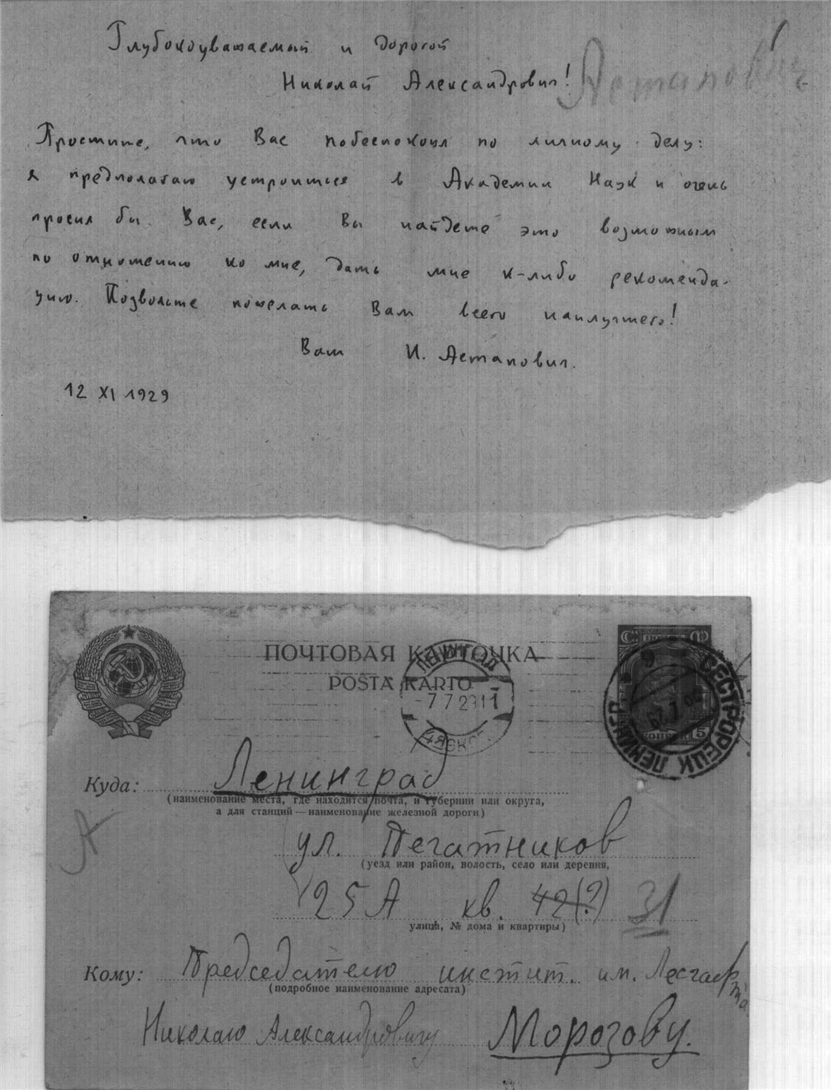 Глубокоуважаемый и дорогой
Николай Александрович!
Астапович
Простите, что Вас побеспокоил по личному делу:
я предполагаю устроиться в Академии Наук и очень
просил бы Вас, если Вы найдете это возможным
по отношению ко мне, дать мне к-либо рекоменда-
цию. Позвольте пожелать Вам всего наилучшего!
Ваш И. Астапович.
12 XI 1929
ПОЧТОВАЯ КАРТОЧКА
POŜTA KARTO
ЛЕНИНГРАД
-7 7 29 11
СЕСТРОРЕЦК ЛЕНИНГР
Куда: Ленинград
(наименование места, где находится почта, и губернии или округа,
а для станций—наименование железной дороги)
А
ул. Печатников
(уезд или район, волость, село или деревня,
25А кв. 42(?) 31
улица, № дома и квартиры)
Кому: Председателю инстит. им. Лесгафта
(подробное наименование адресата)
Николаю Александровичу Морозову.